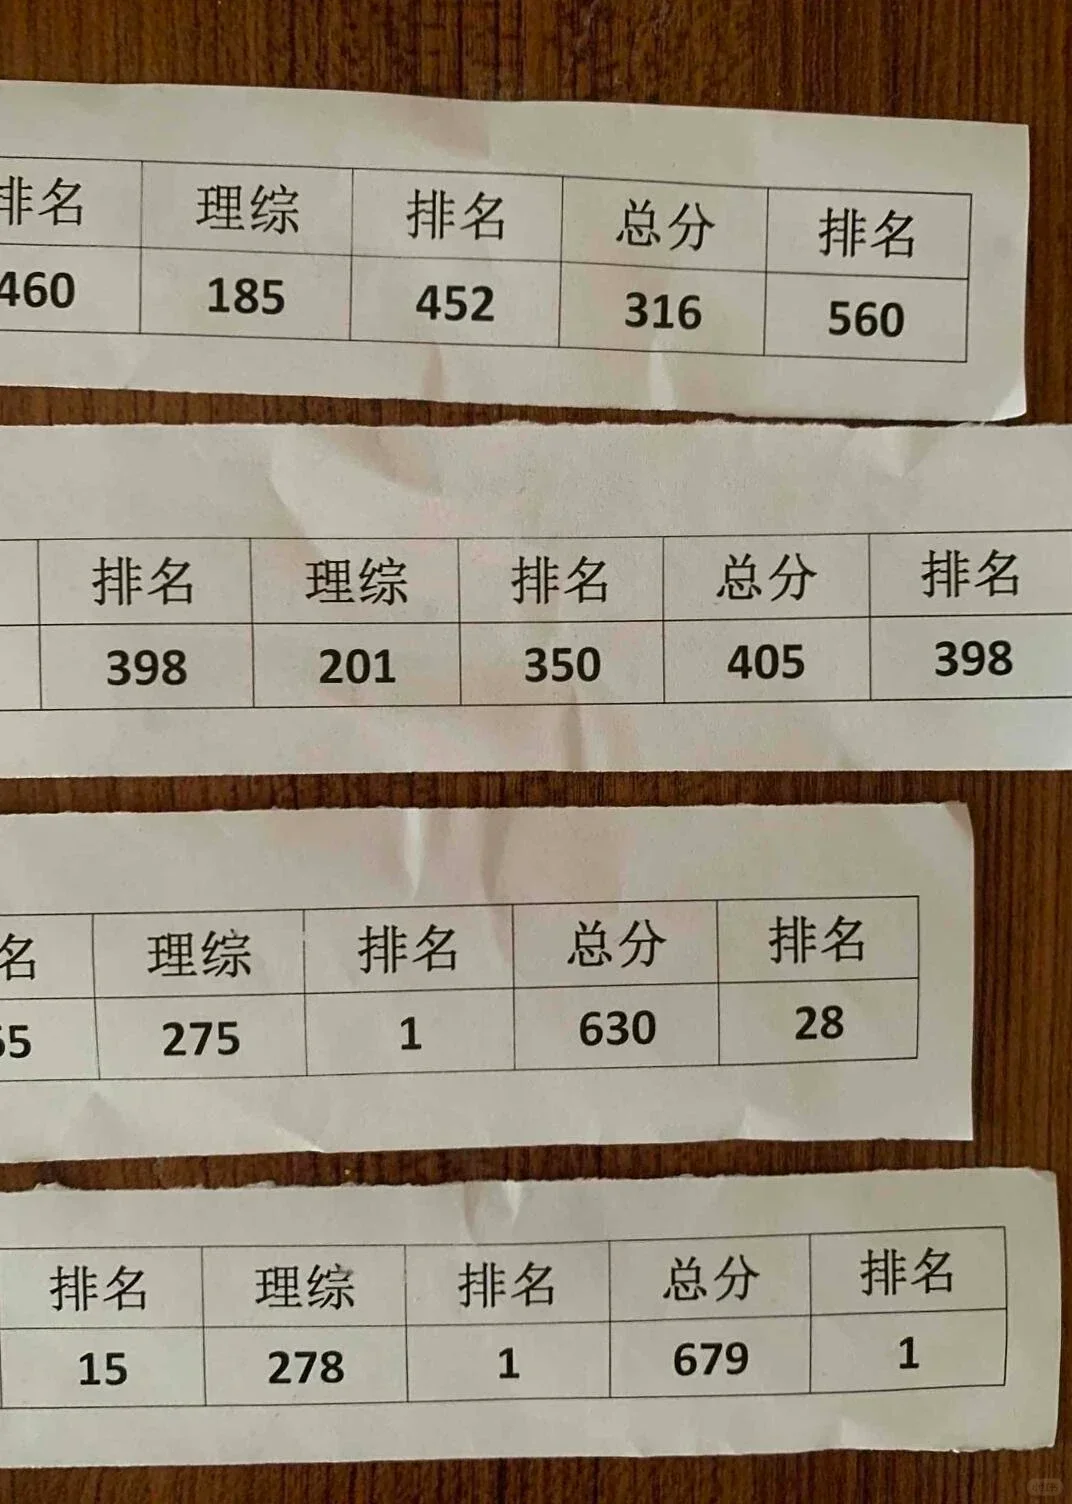 排名 理综 排名 总分 排名
460 185 452 316 560
排名 理综 排名 总分 排名
398 201 350 405 398
名 理综 排名 总分 排名
5 275 1 630 28
排名 理综 排名 总分 排名
15 278 1 679 1